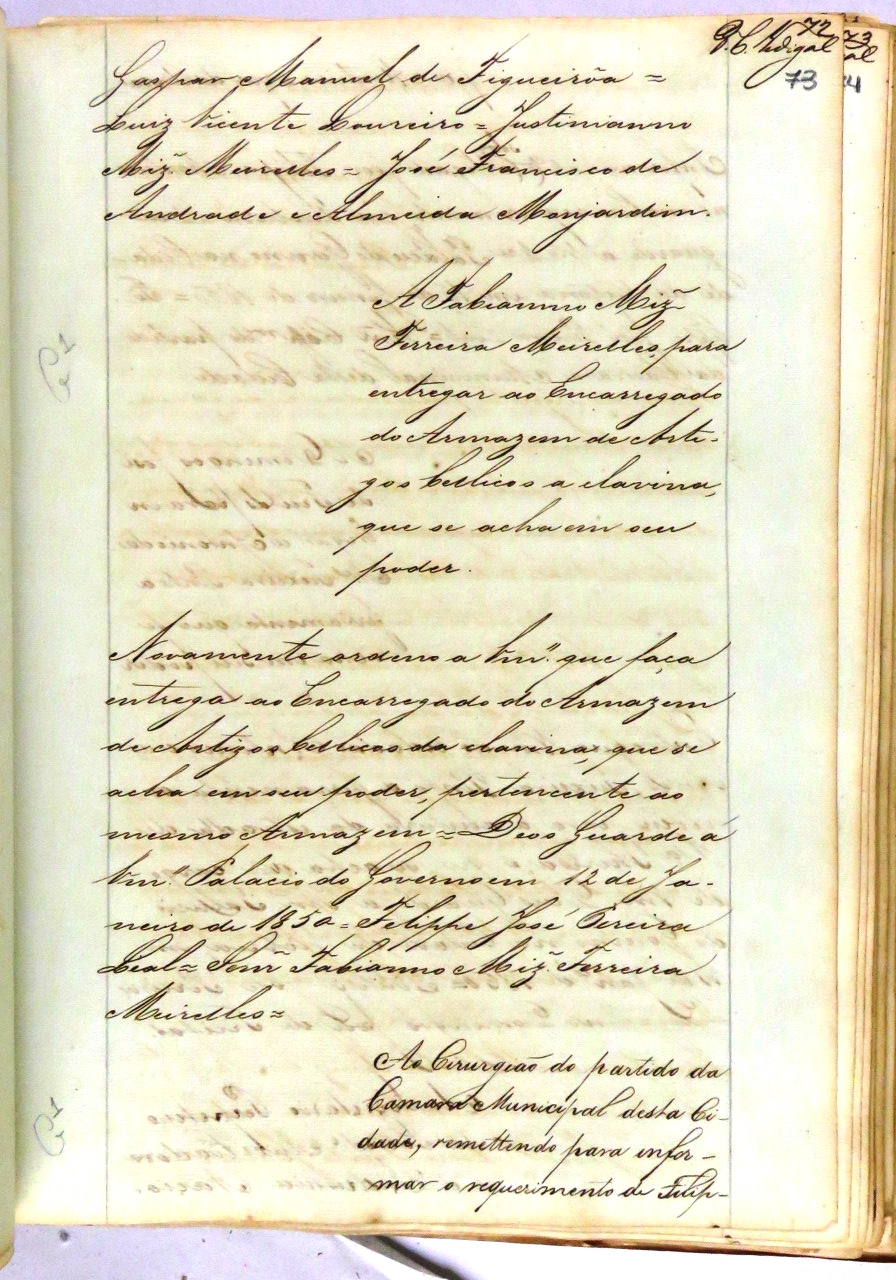 72
73
P. C. Vidigal
al
73
4
Gaspar Manuel de Figueirôa =
Luiz Vicente Loureiro = Justinianno
Miz̃. Meirelles = José Francisco de
Andrade e Almeida Monjardim.
A Fabianno Miz̃
Ferreira Meirelles, para
entregar ao Encarregado
do Armazem de Arti-
gos bellicos a clavina,
que se acha em seu
poder.
Novamente ordeno a Vm.ce que faça
entrega ao Encarregado do Armazem
de Artigos bellicos da clavina, que se
acha em seu poder, pertencente ao
mesmo Armazem = Deos Guarde á
Vm.ce Palacio do Governo em 12 de Ja-
neiro de 1850 = Felippe José Pereira
Leal = Senr̃ Fabianno Miz̃. Ferreira
Meirelles =
Ao Cirurgião do partido da
Camara Municipal desta Ci-
dade, remettendo para infor-
mar o requerimento de Filip-